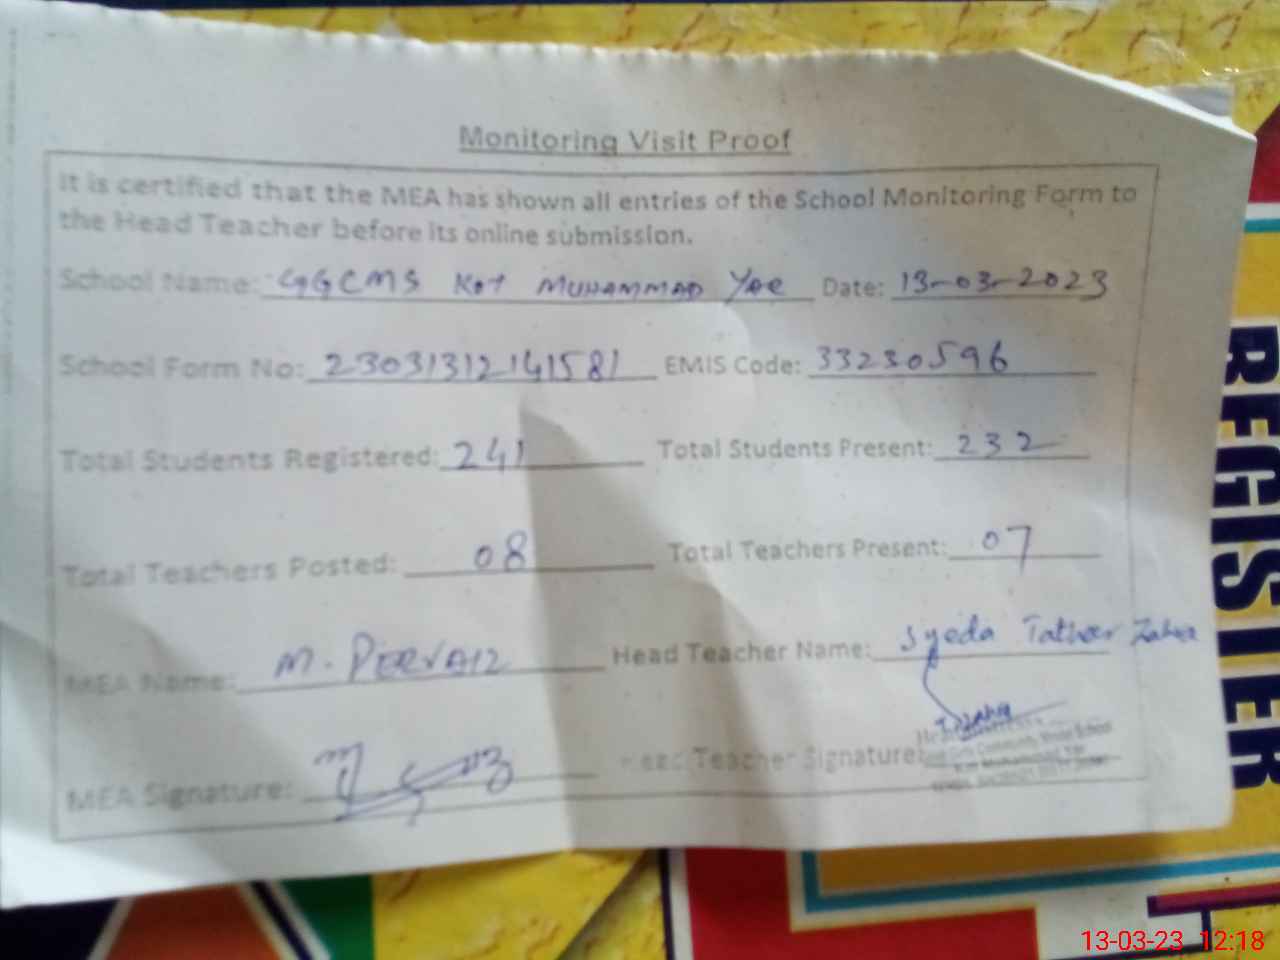 Monitoring Visit Proof
It is certified that the MEA has shown all entries of the School Monitoring Form to
the Head Teacher before its online submission.
School Name: GGCMS Kot MUHAMMAD Yar Date: 13-03-2023
School Form No: 23031312141581 EMIS Code: 33230596
Total Students Registered: 241 Total Students Present: 232
Total Teachers Posted: 08 Total Teachers Present: 07
MEA Name: M. PERVAIZ Head Teacher Name: Syeda Tatheer Zahra
MEA Signature: Head Teacher Signature:
Girls Community Model School
REGISTER
13-03-23 12:18